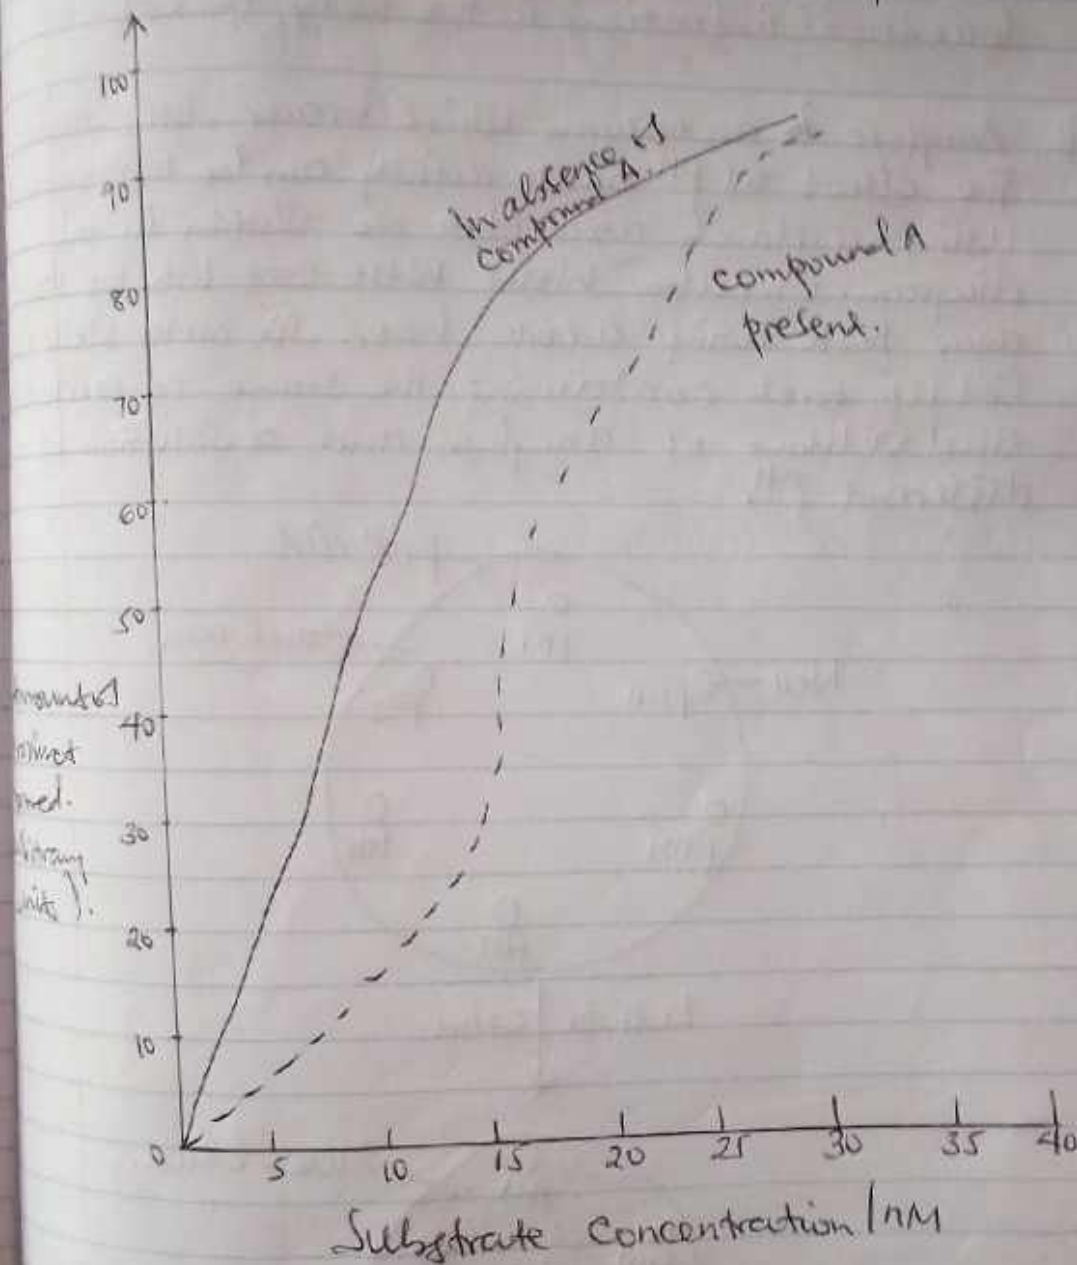 100
90
80
70
60
50
40
30
20
10
0
In abssence of
compound A
compound A
present.
5 10 15 20 25 30 35 40
Substrate Concentration /nM